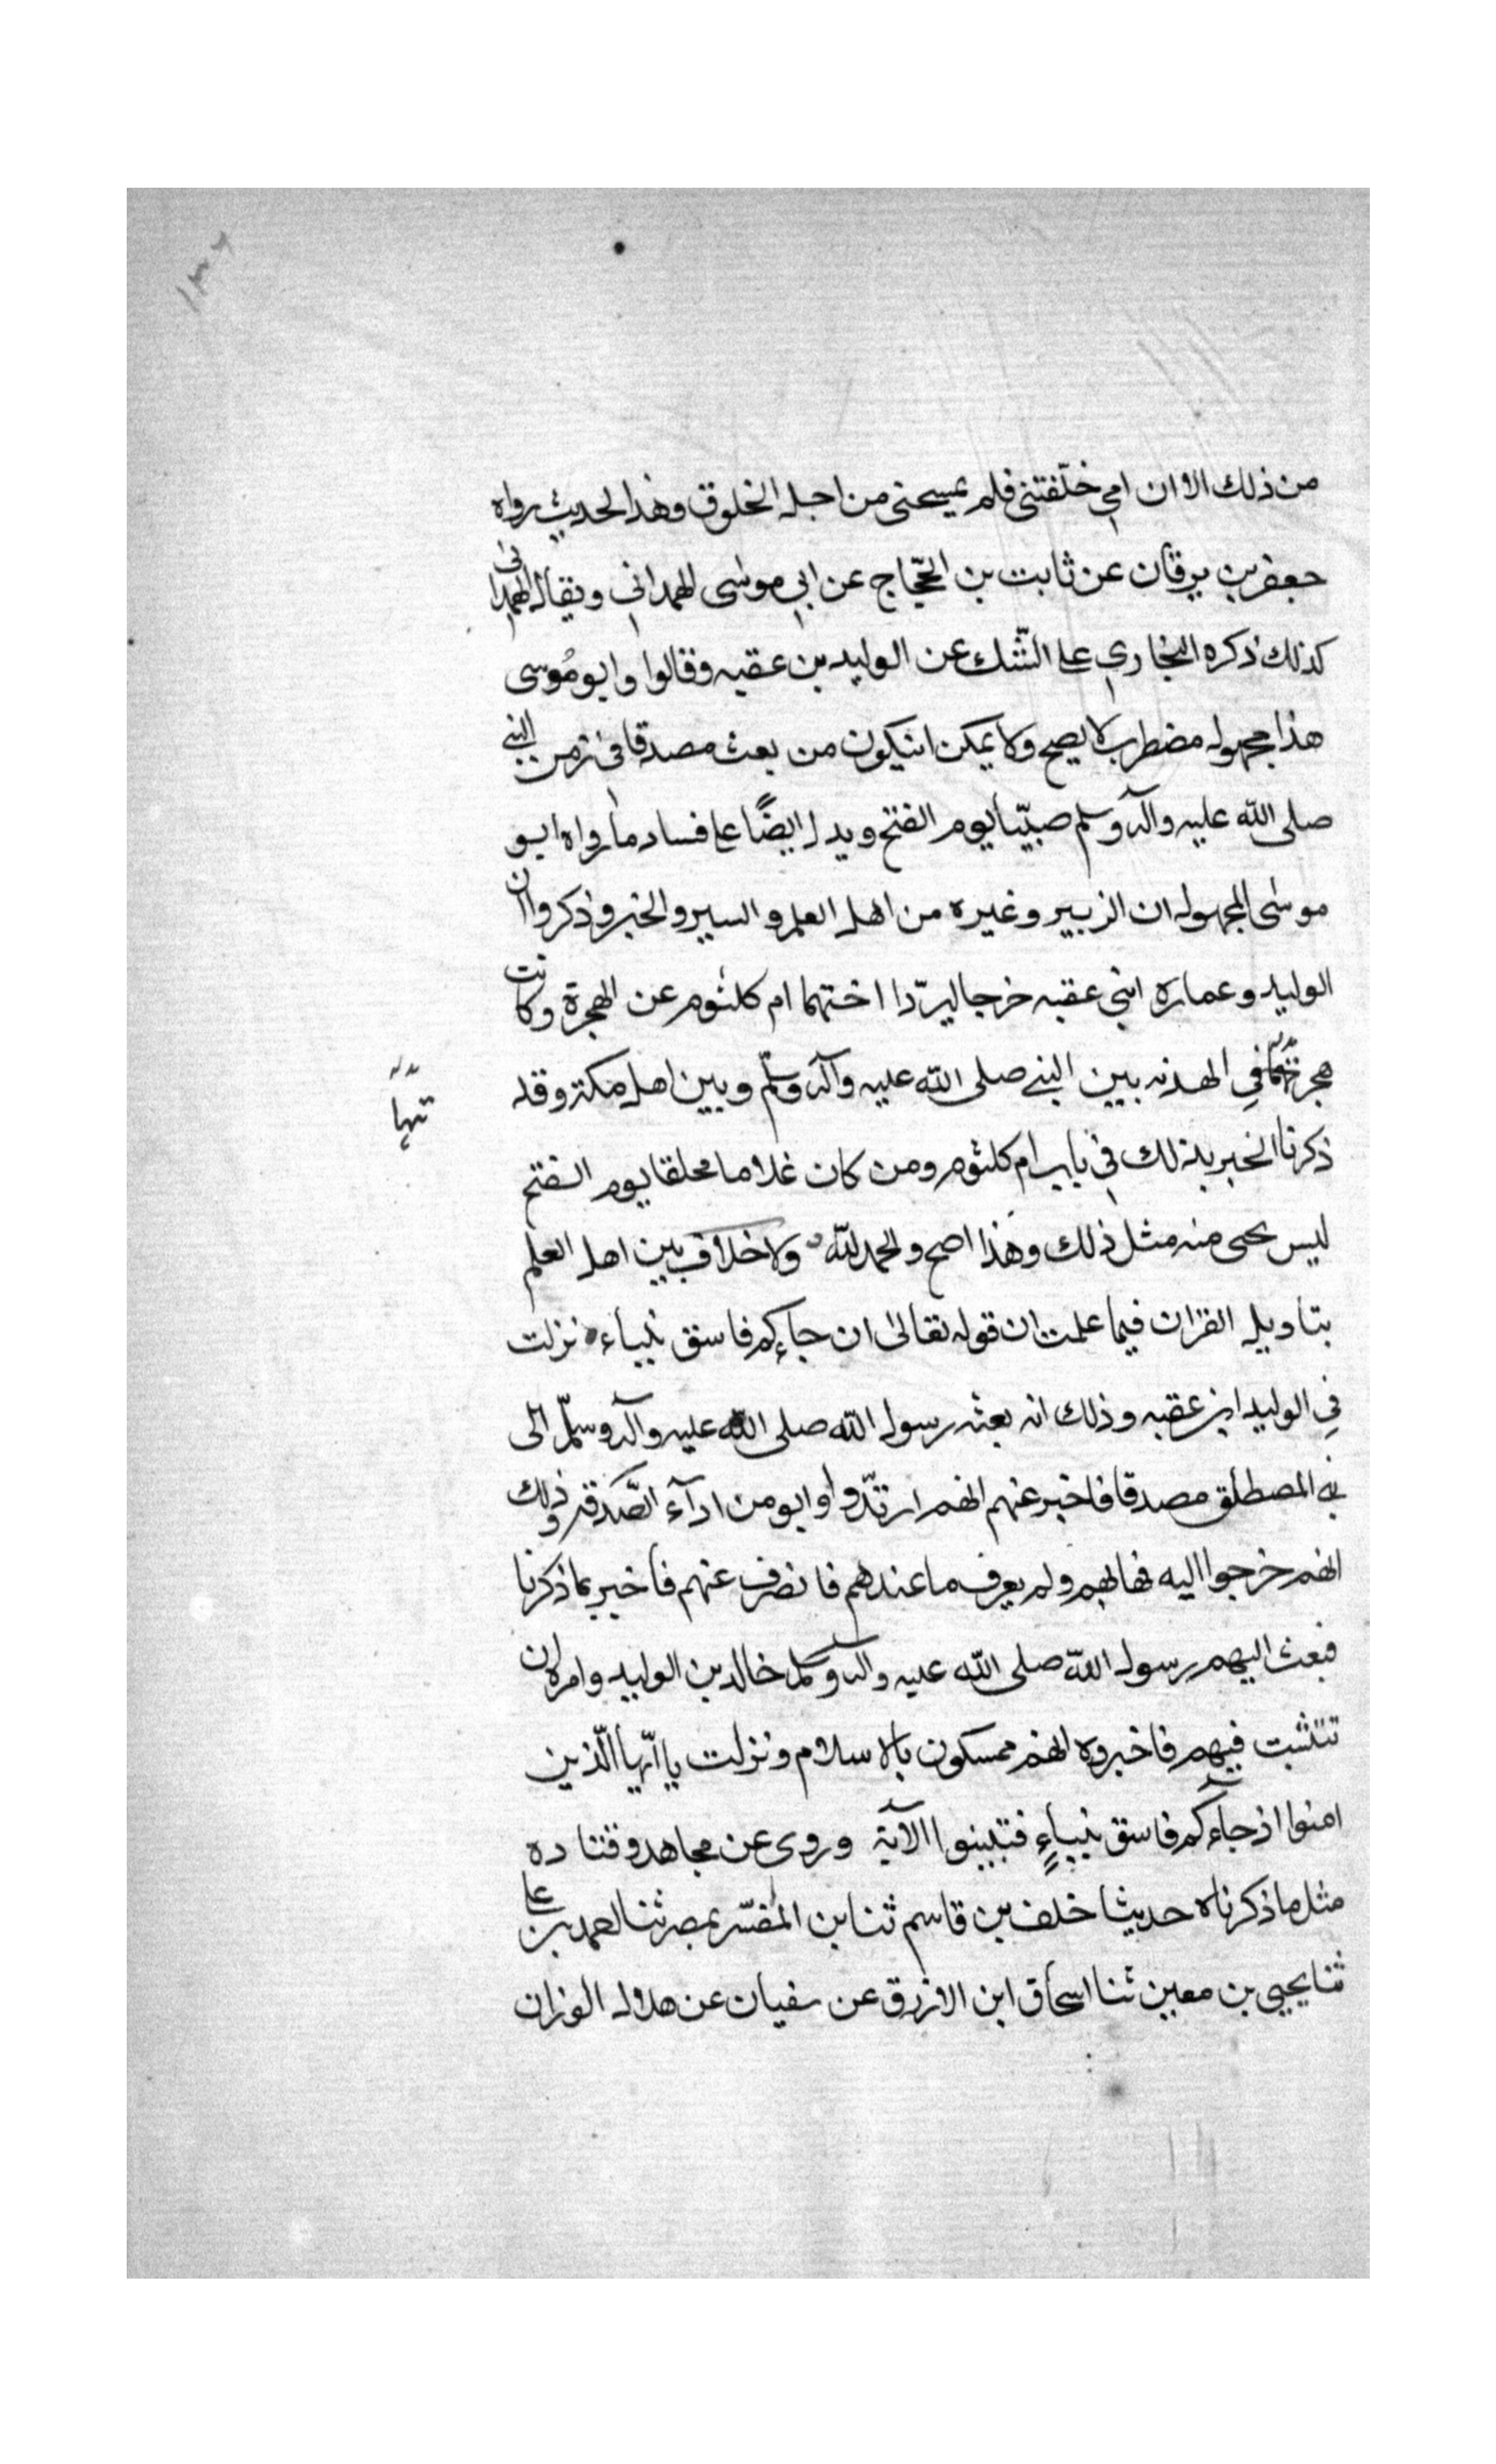 ١٣٦
من ذلك الا ان امي خلّفتنى فلم يمسحنى من اجل الخلوق وهذا الحديث رواه
جعفر بن برقان عن ثابت بن الحجّاج عن ابي موسى الهمداني ويقال الهمدانى
كذلك ذكره البخاري على الشّك عن الوليد بن عقبه وقالوا وابو مُوسى
هذا مجهول مضطرب لا يصح ولا يمكن انيكون من بعث مصدقا فى زمن النبي
صلى الله عليه وآله وسلم صبيّا يوم الفتح ويدل ايضًا على فساد ما رواه ابو
موسى المجهول ان الزبير وغيره من اهل العلم والسير والخبر وذكروا ان
الوليد وعماره ابني عقبه خرجا ليردّا اختهما ام كلثوم عن الهجرة وكانت
هجرتهما في الهدنه بين النبي صلى الله عليه وآله وسلّم وبين اهل مكة وقد
تها
ذكرنا الخبر بذلك في باب ام كلثوم ومن كان غلاما مخلقا يوم الفتح
ليس يجى منه مثل ذلك وهذا اصح والحمد لله ولا خلاف بين اهل العلم
بتاويل القران فيما علمت ان قوله تعالى ان جاءكم فاسق بنباء نزلت
في الوليد ابن عقبه وذلك انه بعثه رسول الله صلى الله عليه وآله وسلّم الى
بني المصطلق مصدقا فاخبر عنهم انهم ارتدّوا وابو من ادآء الصّدقة وذلك
انهم خرجوا اليه فهابهم ولم يعرف ما عندهم فانصرف عنهم فاخبر بما ذكرنا
فبعث اليهم رسول الله صلى الله عليه وآله وسلم خالد بن الوليد وامره ان
تتثبت فيهم فاخبروه انهم ممسكون بالاسلام ونزلت يا ايّها الّذين
امنوا اذ جآءكم فاسق بنباءٍ فتبينوا الآية وروى عن مجاهد وقتاده
مثل ما ذكرناه حديثا خلف بن قاسم ثنا بن المفسّر بمصر ثنا احمد بن على
ثنا يحيى بن معين ثنا اسحاق ابن الازرق عن سفيان عن هلال الوزان